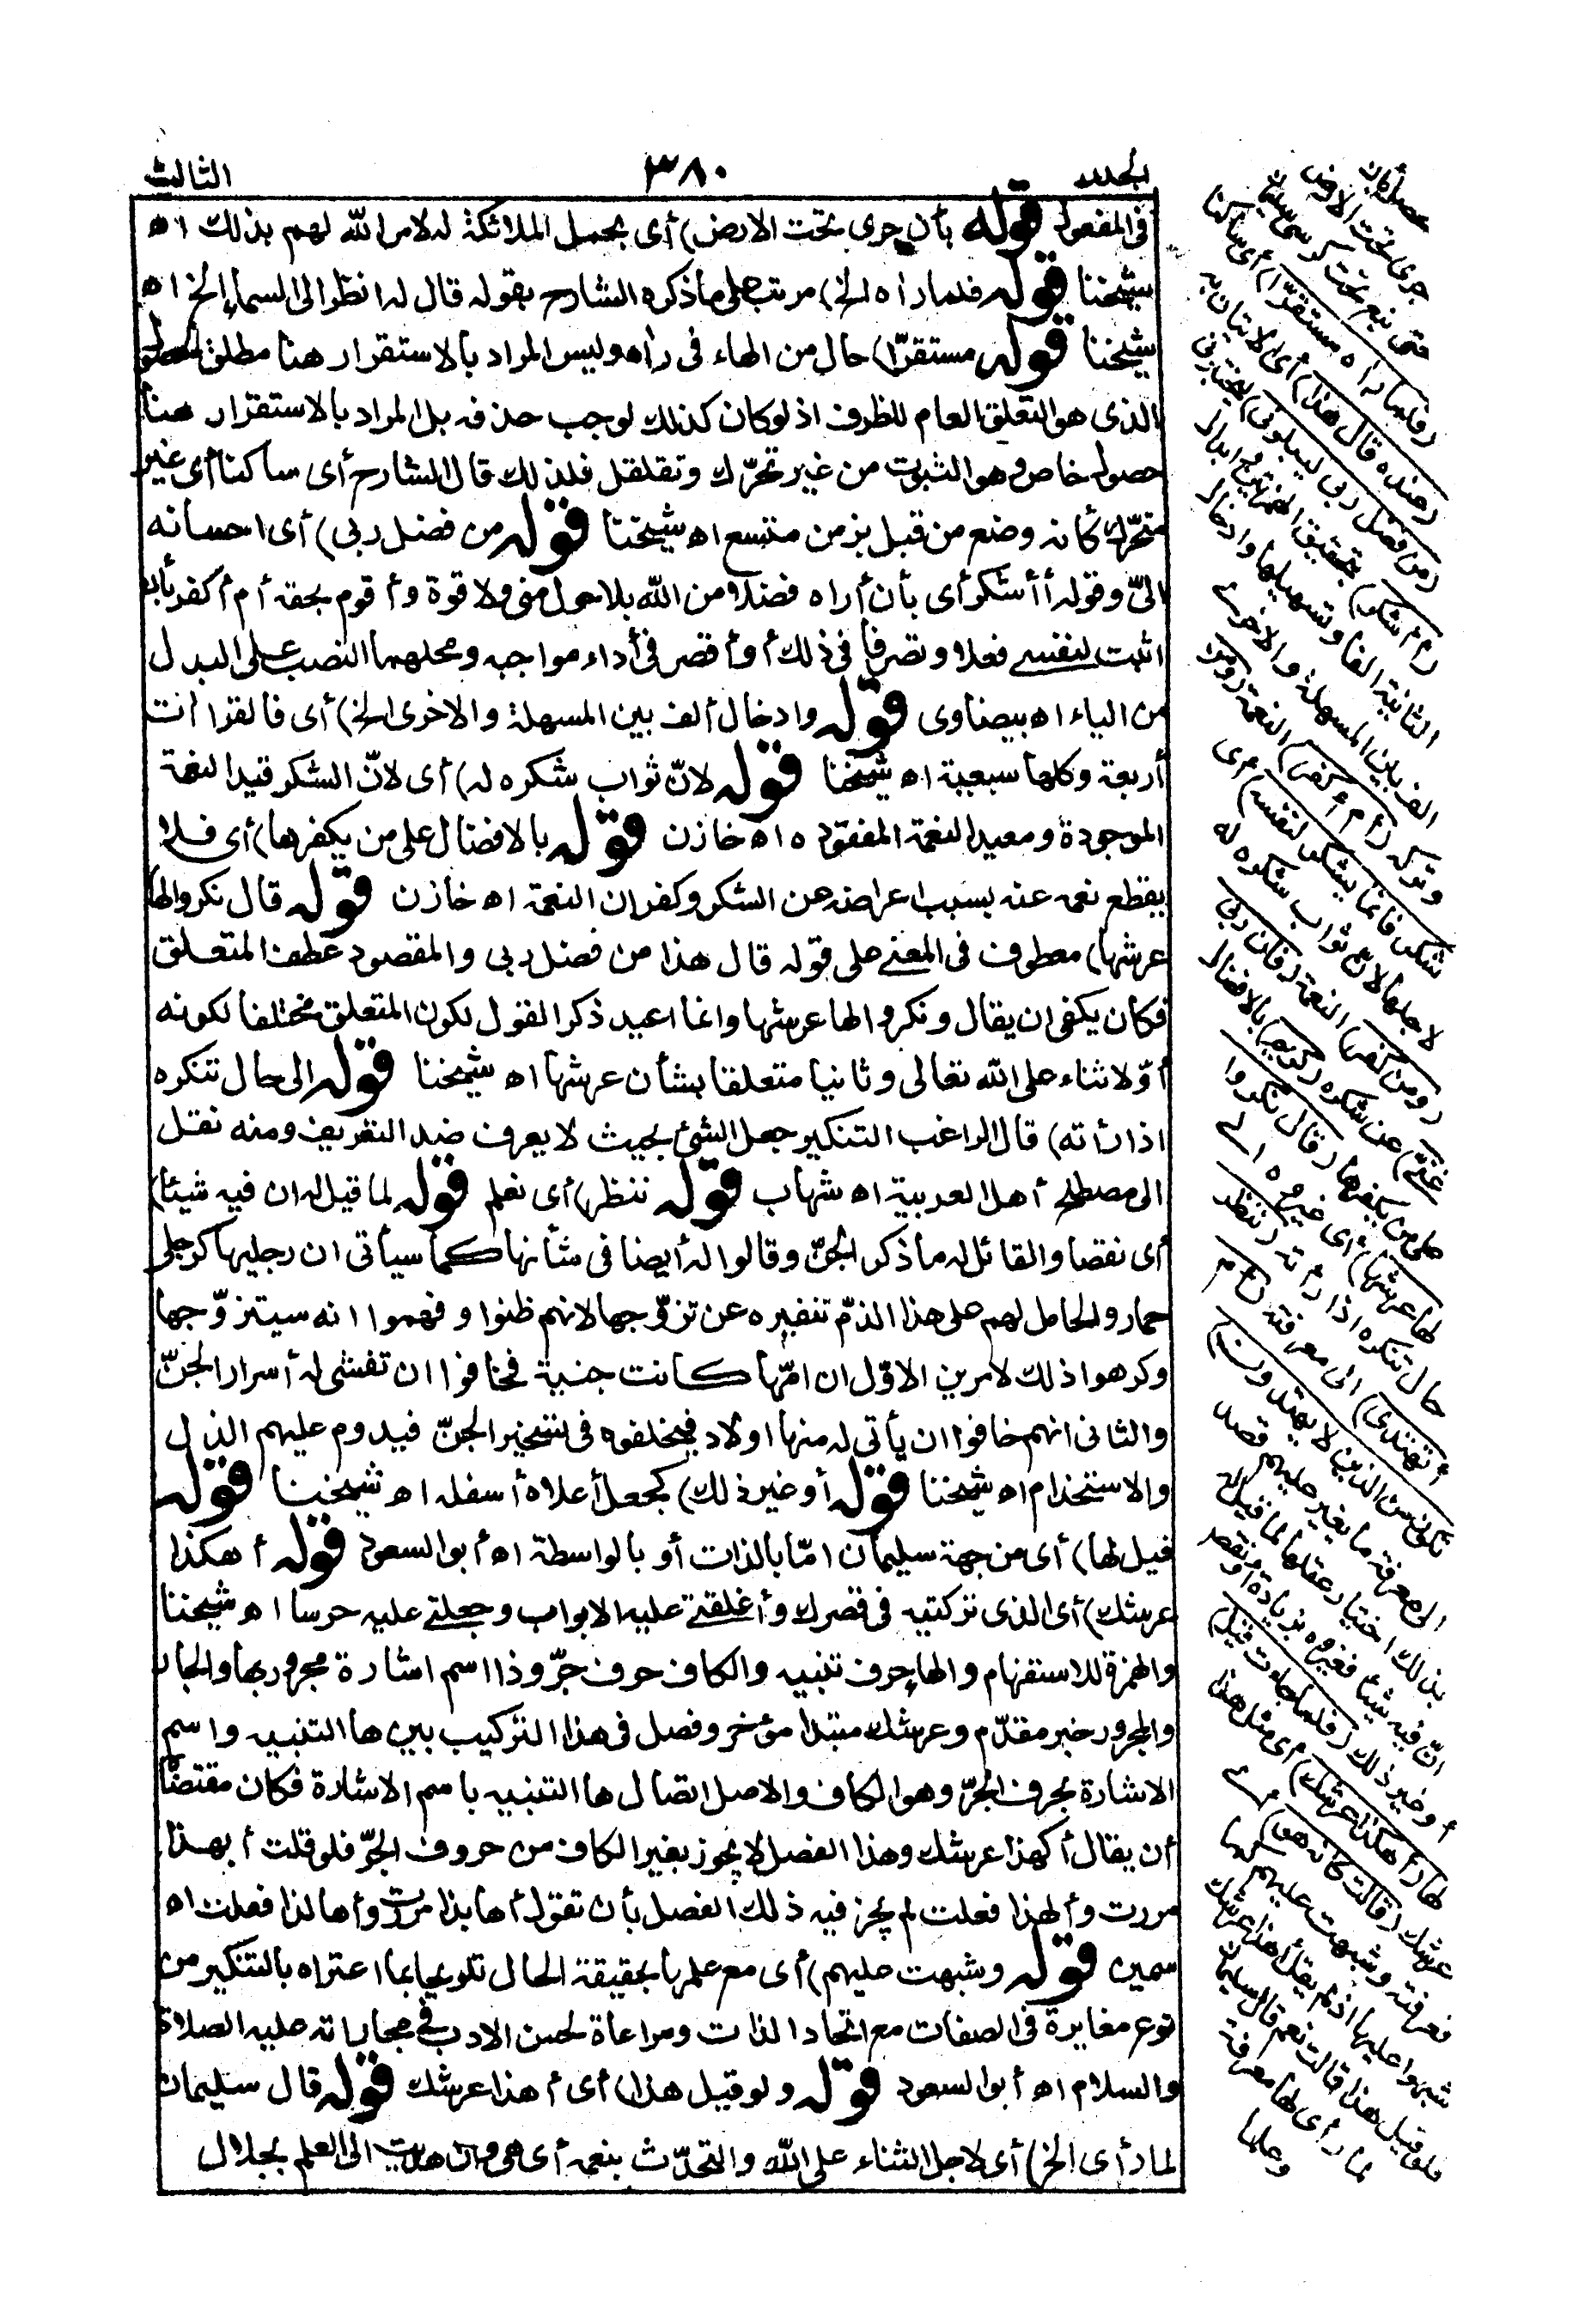 الجلد ٣٨٠ الثالث
فى المفعول قوله بأن جرى تحت الارض) أى بحمل الملائكة له لامر الله لهم بذلك اه
شيخنا قوله فلما رآه الخ) مرتب على ما ذكره الشارح بقوله قال له انظر الى السماء الخ اه
شيخنا قوله مستقرّا) حال من الهاء فى رآه وليس المراد بالاستقرار هنا مطلق الحصول
الذى هو التعلق العام للظرف اذ لو كان كذلك لوجب حذفه بل المراد بالاستقرار هنا
حصول خاص وهو الثبوت من غير تحرّك وتقلقل فلذلك قال الشارح أى ساكنا أى غير
متحرّك كأنه وضع من قبل بزمن متسع اه شيخنا قوله من فضل ربى) أى احسانه
الىّ وقوله أأشكر أى بأن أراه فضلا من الله بلا حول منى ولا قوة وأقوم بحقه أم أكفر بأن
اثبت لنفسى فعلا وتصرفا فى ذلك أو أقصر فى أداء مواجبه ومحلهما النصب على البدل
من الياء اه بيضاوى قوله وادخال ألف بين المسهلة والاخرى الخ) أى فالقراآت
أربعة وكلها سبعية اه شيخنا قوله لانّ ثواب شكره له) أى لانّ الشكر قيد النعمة
الموجودة ومعيد النعمة المفقودة اه خازن قوله بالافضال على من يكفرها) أى فلا
يقطع نعمه عنه بسبب اعراضه عن الشكر وكفران النعمة اه خازن قوله قال نكروا لها
عرشها) معطوف فى المعنى على قوله قال هذا من فضل ربى والمقصود عطف المتعلق
فكان يكفى ان يقال ونكروا لها عرشها وانما اعيد ذكر القول لكون المتعلق مختلفا لكونه
أوّلا ثناء على الله تعالى وثانيا متعلقا بشأن عرشها اه شيخنا قوله الى حال تنكره
اذا رأته) قال الراغب التنكير جعل الشئ بحيث لا يعرف ضد التعريف ومنه نقل
الى مصطلح أهل العربية اه شهاب قوله ننظر) أى نعلم قوله لما قيل له ان فيه شيئا)
أى نقصا والقائل له ما ذكر الجنّ وقالوا له أيضا فى شأنها كما سيأتى ان رجليها كرجلى
حمار والحامل لهم على هذا الذمّ تنفيره عن تزوّجها لانهم ظنوا وفهموا انه سيتزوّجها
وكرهوا ذلك لامرين الاوّل ان امّها كانت جنية فخافوا ان تفشى له أسرار الجنّ
والثانى انهم خافوا ان يأتى له منها اولاد فيخلفوه فى تسخير الجنّ فيدوم عليهم الذل
والاستخدام اه شيخنا قوله أو غير ذلك) كجعل أعلاه أسفله اه شيخنا قوله
قيل لها) أى من جهة سليمان امّا بالذات أو بالواسطة اه أبو السعود قوله أهكذا
عرشك) أى الذى تركتيه فى قصرك وأغلقتى عليه الابواب وجعلتى عليه حرسا اه شيخنا
والهمزة للاستفهام والهاء حرف تنبيه والكاف حرف جرّ وذا اسم اشارة مجرور بها والجار
والمجرور خبر مقدّم وعرشك مبتدا مؤخر وفصل فى هذا التركيب بين ها التنبيه واسم
الاشارة بحرف الجرّ وهو الكاف والاصل اتصال ها التنبيه باسم الاشارة فكان مقتضاه
أن يقال أكهذا عرشك وهذا الفصل لا يجوز بغير الكاف من حروف الجرّ فلو قلت أبهذا
مررت وألهذا فعلت لم يجز فيه ذلك الفصل بأن تقول أها بذا مررت وأها لذا فعلت اه
سمين قوله وشبهت عليهم) أى مع علمها بحقيقة الحال تلويحا بما اعتراه بالتنكير من
نوع مغايرة فى الصفات مع اتحاد الذات ومراعاة لحسن الادب فى محاباته عليه الصلاة
والسلام اه أبو السعود قوله ولو قيل هذا) أى أهذا عرشك قوله قال سليمان
لما رأى الخ) أى لاجل الثناء على الله والتحدّث بنعمه أى العلم بجلال
جرى تحت الارض
حتى نبع تحت كرسى سليمان
(فلما رآه مستقرّا) أى ساكنا
(عنده قال هذا) أى الاتيان به
(من فضل ربى ليبلونى) ليختبرنى
(أأشكر) بتحقيق الهمزتين وابدال
الثانية الفا وتسهيلها وادخال
الف بين المسهلة والاخرى
وتركه (أم أكفر) النعمة (ومن
شكر فانما يشكر لنفسه) أى
لاجلها لانّ ثواب شكره له
(ومن كفر) النعمة (فان ربى
غنىّ) عن شكره (كريم) بالافضال
على من يكفرها (قال نكروا
لها عرشها) أى غيروه الى
حال تنكره اذا رأته (ننظر
أتهتدى) الى معرفته (أم
تكون من الذين لا يهتدون)
الى معرفة ما يغير عليهم قصد
بذلك اختبار عقلها لما قيل له
انّ فيه شيئا فغيروه بزيادة أو نقص
أو غير ذلك (فلما جاءت قيل)
لها (أهكذا عرشك) أى مثل هذا
عرشك (قالت كأنه هو) أى
فعرفته وشبهت عليهم كما
شبهوا عليها اذ لم يقل أهذا عرشك
ولو قيل هذا قالت نعم قال سليمان
لما رأى لها معرفة
وعلما